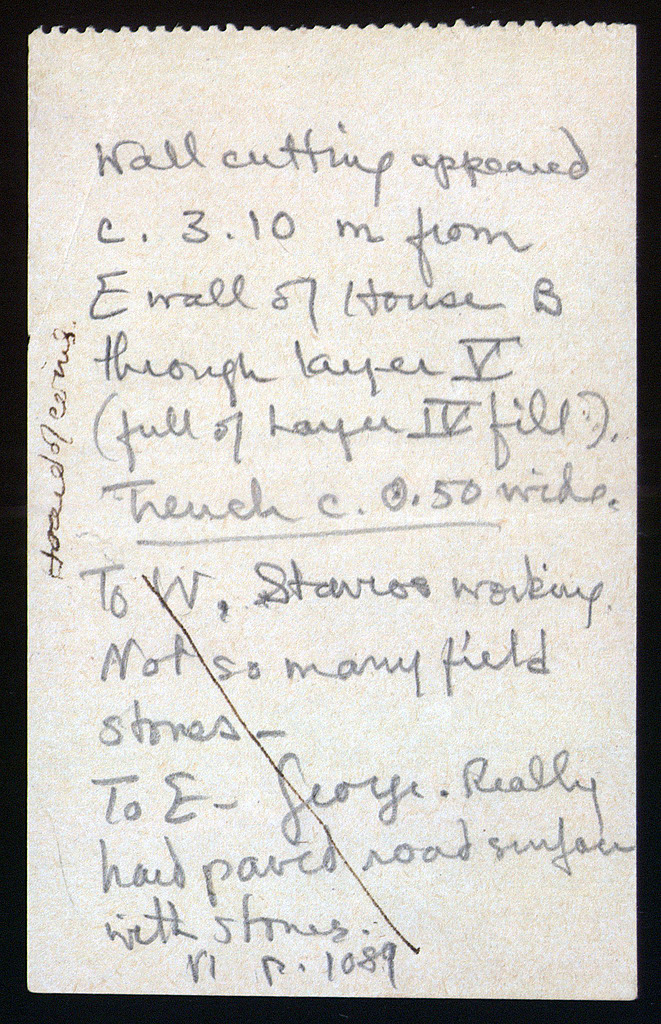 Wall cutting appeared
c. 3.10 m from
E wall of House B
through layer V
(full of Layer IV fill).
Trench c. 0.50 wide.
To W, Stavros working.
Not so many field
stones -
To E - George. Really
hard paved road surface
with stones.
VI p. 1089
Hoard of coins.